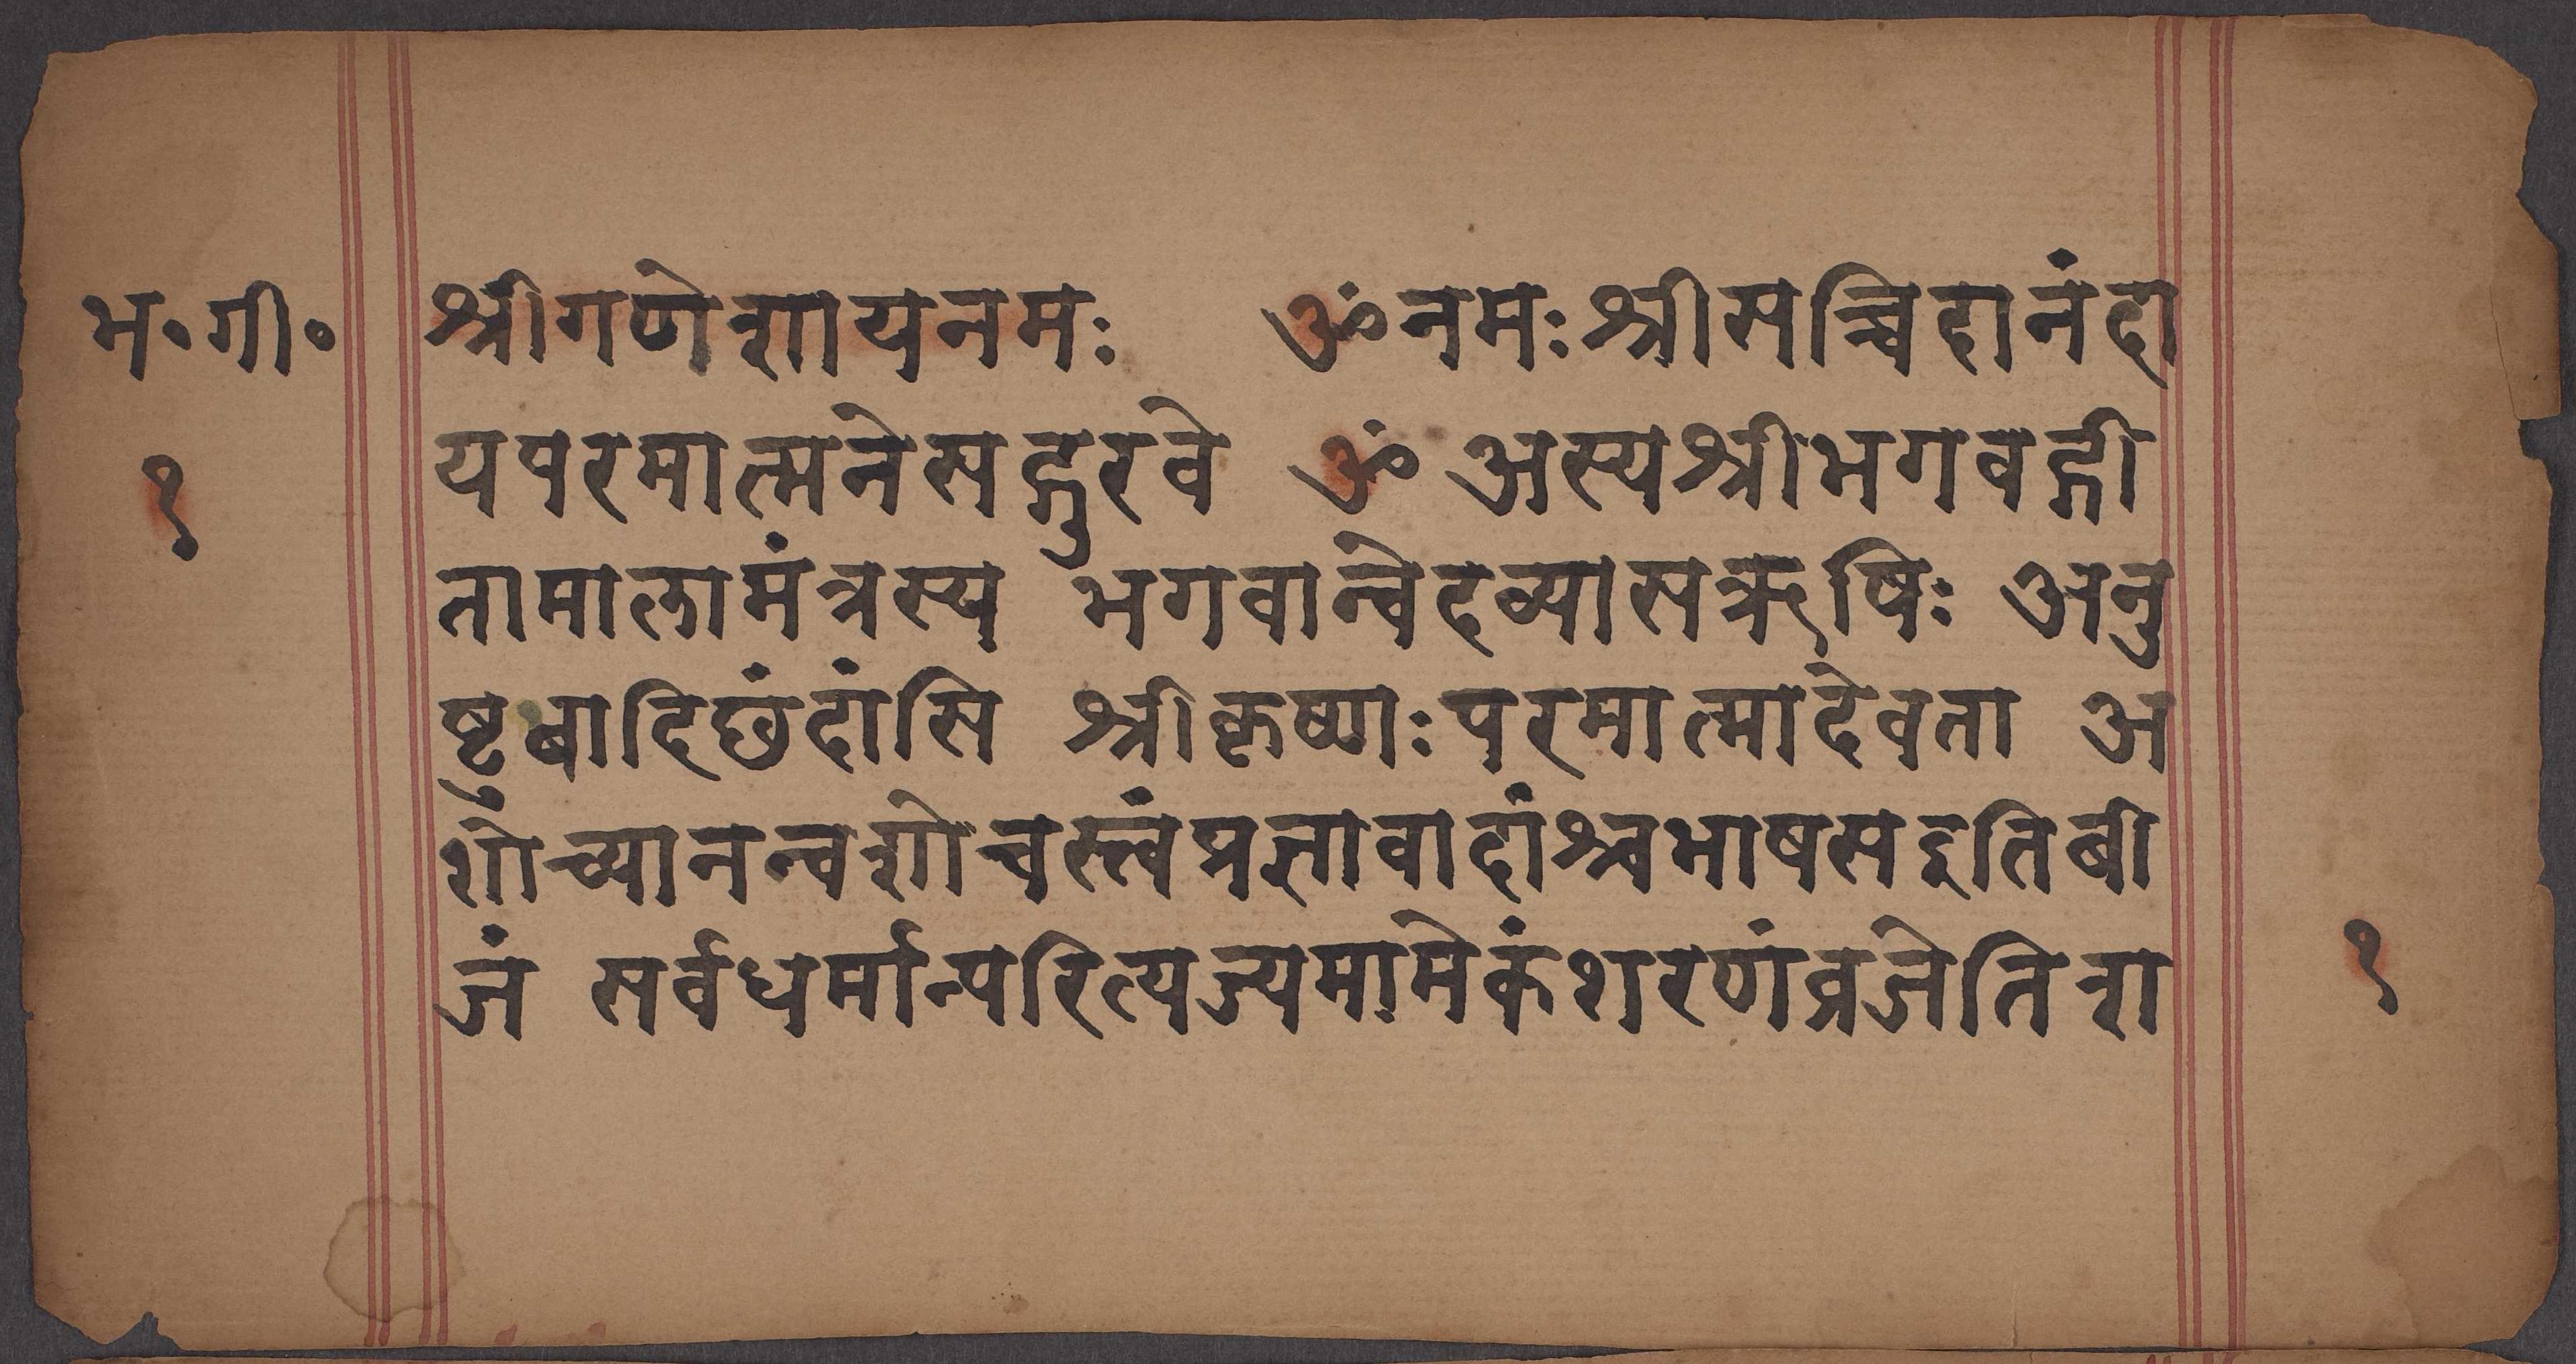 भ॰गी॰
१
श्रीगणेशायनमः ॐनमःश्रीसच्चिदानंदा
यपरमात्मनेसद्गुरवे ॐ अस्यश्रीभगवद्गी
तामालामंत्रस्य भगवान्वेदव्यासऋषिः अनु
ष्टुबादिछंदांसि श्रीकृष्णःपरमात्मादेवता अ
शोच्यानन्वशोचस्त्वंप्रज्ञावादांश्चभाषसइतिबी
जं सर्वधर्मान्परित्यज्यमामेकंशरणंव्रजेतिशा
१